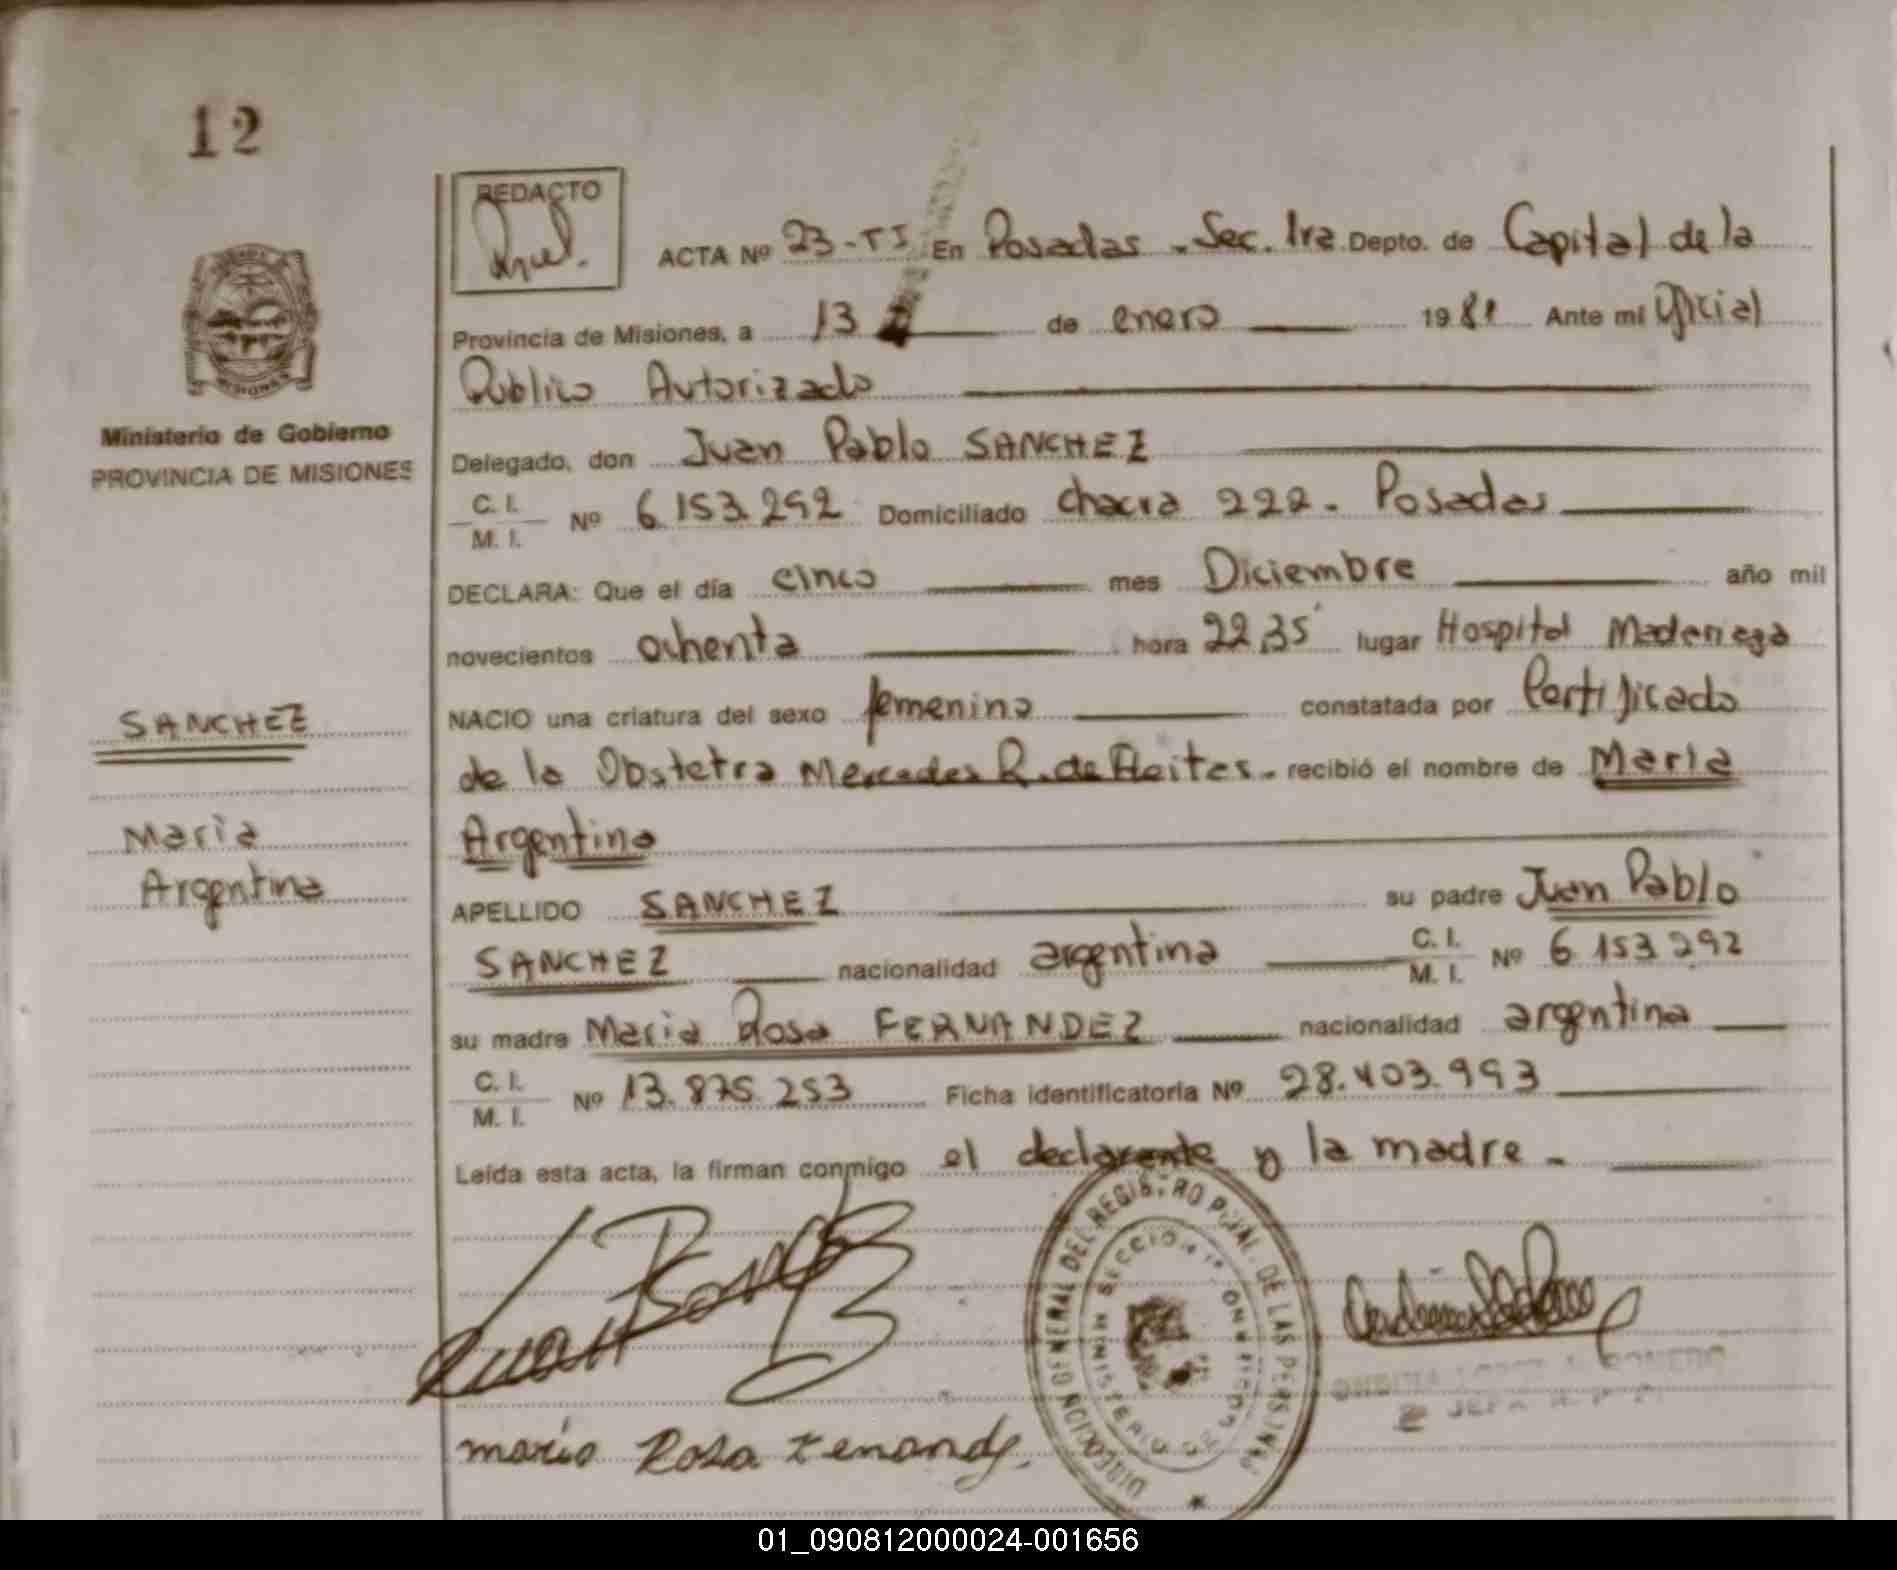 12
REDACTO
ACTA Nº 23-TI En Posadas - Sec. 1ra. Depto. de Capital de la
Provincia de Misiones, a 13 de enero 1981 Ante mi Oficial
Publico Autorizado
Ministerio de Gobierno
PROVINCIA DE MISIONES
Delegado, don Juan Pablo SANCHEZ
C. I.
M. I. Nº 6.153.292 Domiciliado chacra 222 - Posadas
DECLARA: Que el día cinco mes Diciembre año mil
novecientos ochenta hora 22,35' lugar Hospital Madariaga
SANCHEZ
NACIO una criatura del sexo femenino constatada por Certificado
de la Obstetra Mercedes R. de Fleitas. recibió el nombre de Maria
Maria
Argentina
Argentina
APELLIDO SANCHEZ su padre Juan Pablo
SANCHEZ nacionalidad argentina C. I. M. I. Nº 6.153.292
su madre Maria Rosa FERNANDEZ nacionalidad argentina
C. I.
M. I. Nº 13.875.253 Ficha identificatoria Nº 28.403.993
Leída esta acta, la firman conmigo el declarante y la madre -
DIRECCION GENERAL DEL REGISTRO PCIAL. DE LAS PERSONAS
maria Rosa Fenandz.
01_090812000024-001656